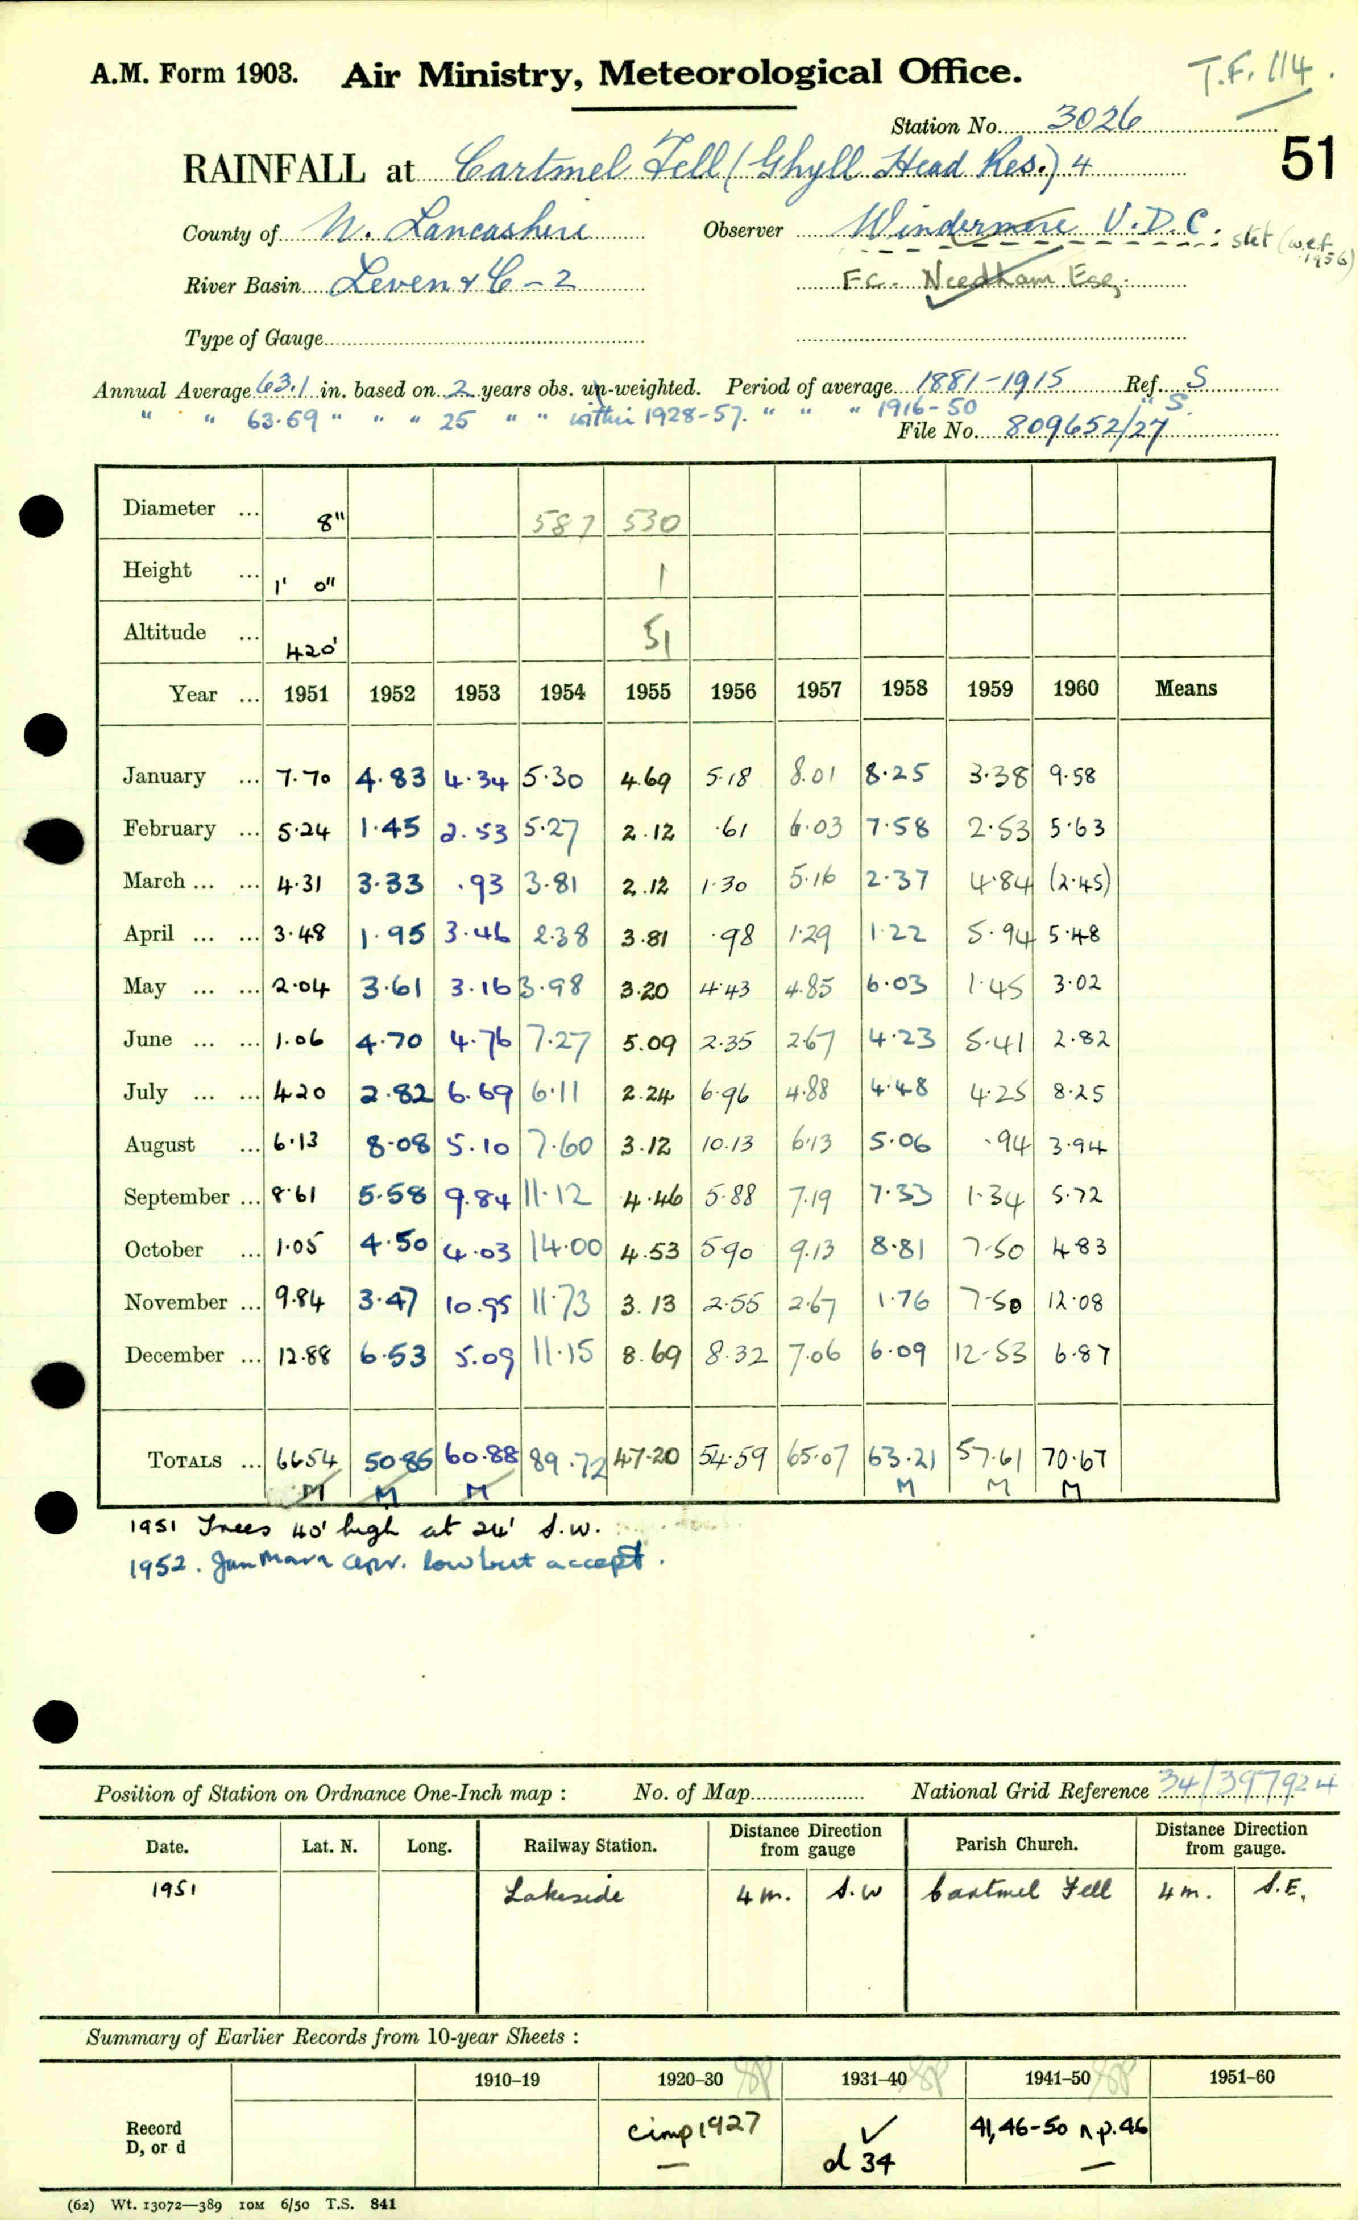 A.M. Form 1903. Air Ministry, Meteorological Office. T.F. 114.
Station No. 3026
51
RAINFALL at Cartmel Fell (Ghyll Head Res.) 4
County of N. Lancashire Observer Windermere U.D.C. stet (w.e.f. 1956)
River Basin Leven & C - 2 F.C. Needham Esq.
Type of Gauge
Annual Average 63.1 in. based on 2 years obs. un-weighted. Period of average 1881-1915 Ref. S
" " 63.69 " " " 25 " " within 1928-57. " " " 1916-50 " S.
File No. 809652/27
Diameter ... 8" 587 530
Height ... 1' 0" 1
Altitude ... 420' 51
Year ... 1951 1952 1953 1954 1955 1956 1957 1958 1959 1960 Means
January ... 7.70 4.83 4.34 5.30 4.69 5.18 8.01 8.25 3.38 9.58
February ... 5.24 1.45 2.53 5.27 2.12 .61 6.03 7.58 2.53 5.63
March ... ... 4.31 3.33 .93 3.81 2.12 1.30 5.16 2.37 4.84 (2.45)
April ... ... 3.48 1.95 3.46 2.38 3.81 .98 1.29 1.22 5.94 5.48
May ... ... 2.04 3.61 3.16 3.98 3.20 4.43 4.85 6.03 1.45 3.02
June ... ... 1.06 4.70 4.76 7.27 5.09 2.35 2.67 4.23 5.41 2.82
July ... ... 4.20 2.82 6.69 6.11 2.24 6.96 4.88 4.48 4.25 8.25
August ... 6.13 8.08 5.10 7.60 3.12 10.13 6.13 5.06 .94 3.94
September ... 8.61 5.58 9.84 11.12 4.46 5.88 7.19 7.33 1.34 5.72
October ... 1.05 4.50 4.03 14.00 4.53 5.90 9.13 8.81 7.50 4.83
November ... 9.84 3.47 10.95 11.73 3.13 2.55 2.67 1.76 7.50 12.08
December ... 12.88 6.53 5.09 11.15 8.69 8.32 7.06 6.09 12.53 6.87
TOTALS ... 66.54 50.85 60.88 89.72 47.20 54.59 65.07 63.21 57.61 70.67
M M M M M M
1951 Trees 40' high at 24' S.W.
1952. Jan March Apr. low but accept.
Position of Station on Ordnance One-Inch map : No. of Map National Grid Reference 34/397924
Date. Lat. N. Long. Railway Station. Distance from gauge Direction Parish Church. Distance from gauge. Direction
1951 Lakeside 4 m. S.W Cartmel Fell 4 m. S.E.
Summary of Earlier Records from 10-year Sheets :
1910-19 1920-30 1931-40 1941-50 1951-60
Record D, or d cimp 1927 ✓ d 34 41, 46-50 n p. 46
(62) Wt. 13072—389 10M 6/50 T.S. 841